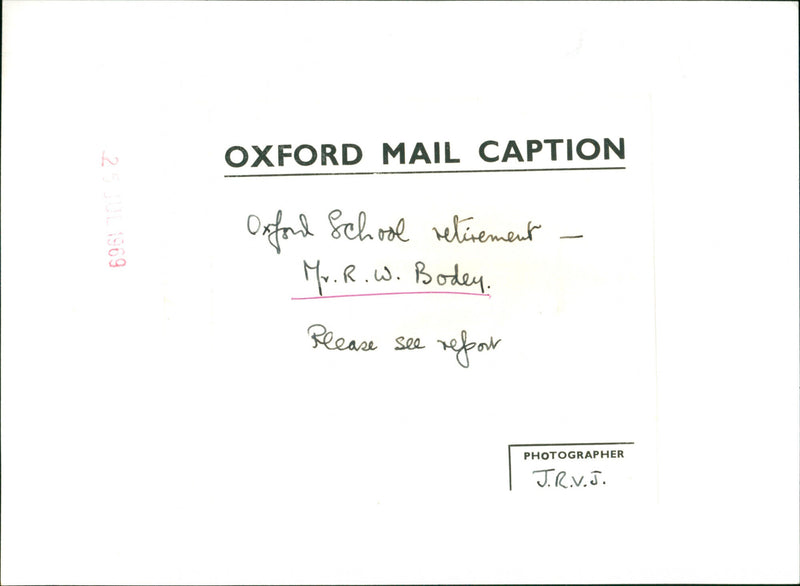 OXFORD MAIL CAPTION
Oxford School retirement —
Mr. R. W. Bodey.
Please see report
PHOTOGRAPHER
J.R.V.J.
25 JUL 1969